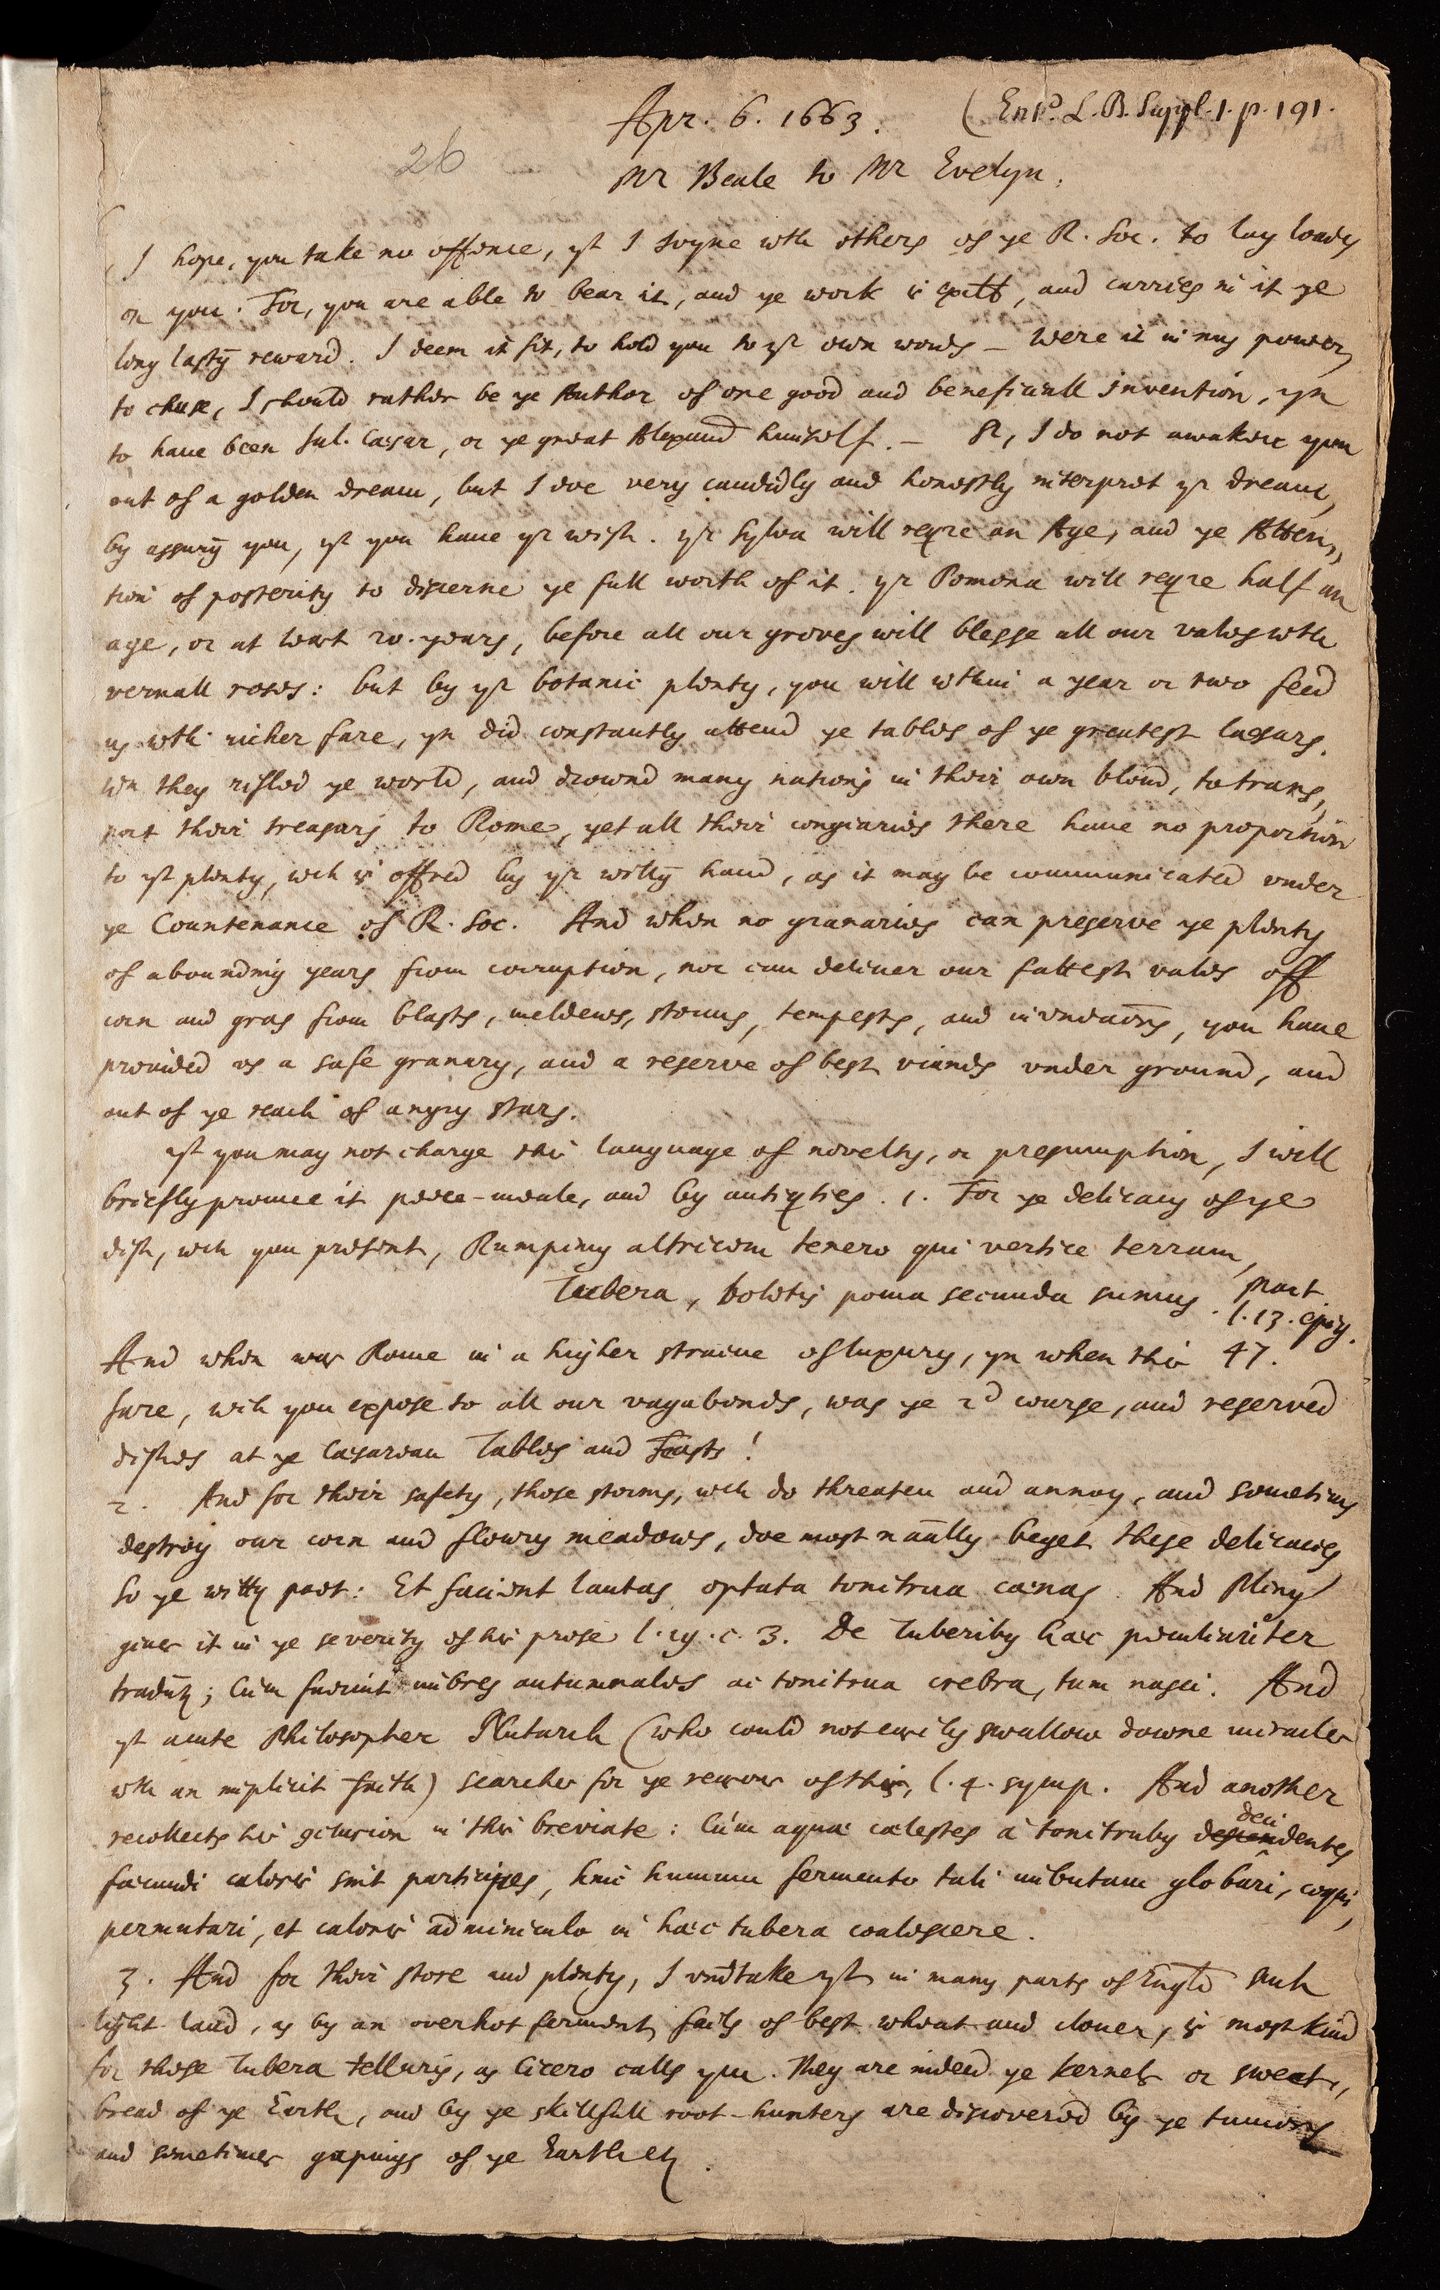 Apr. 6. 1663. (Entd. L.B. Suppl. 1. p. 191.
26
Mr Beale to Mr Evelyn.
I hope, you take no offence, yt I joyne wth others of ye R. Soc. to lay loads
on you. For, you are able to bear it, and ye work is and carries in it ye
long lastg reward. I deem it fit, to hold you to yr own words – Were it in my power,
to chuse, I should rather be ye Author of one good and beneficiall invention, yn
to have been Jul. Caesar, or ye great Alexand himself. – Sr, I do not awaken you
out of a golden dream, but I doe very candidly and honestly interpret yr dream,
by assurg you, yt you have yr wish. yr Sylva will reqre an Age, and ye Atten,,
tion of posterity to discerne ye full worth of it. yr Pomona will reqre half an
age, or at least 20. years, before all our groves will blesse all our vales wth
vernall roses: but by yr botanic plenty, you will wthin a year or two feed
us wth richer fare, yn did constantly attend ye tables of ye greatest Caesars.
wn they rifled ye world, and drownd many nations in their own bloud, to trans,,
port their treasurs to Rome, yet all their congiaries there have no proportion
to yt plenty, wch is offred by yr hand, as it may be communicated under
ye Countenance of R. Soc. And when no granaries can preserve ye plenty
of abounding years from corruption, nor can deliver our fattest vales off
corn and gras from blasts, meldews, storms, tempests, and inundations, you have
provided us a safe granary, and a reserve of best viands under ground, and
out of ye reach of angry stars.
yt you may not charge this language of novelty, or presumption, I will
briefly prouve it peece-meale, and by antiqties. 1. For ye delicacy of ye
dish, wch you present, Rumpimus altricem tenero qui vertice terram,
Tubera, boletis poma secunda sumus. Mart.
l. 13. epig.
And when was Rome in a higher straine of luxury, yn when this 47.
fare, wch you expose to all our vagabonds, was ye 2d course, and reserved
dishes at ye Caesarean Tables and Feasts!
2. And for their safety, those storms, wch do threaten and annoy, and sometims
destroy our corn and flowry meadows, doe most nāally beget these delicacies
So ye witty poet: Et facient lautas optata tonitrua caenas. And Pliny
gives it in ye severity of his prose l. 19. c. 3. De Tuberiby haec peculiariter
tradunt; Cum fuerint imbres autumnales ac tonitrua crebra, tum nasci. And
yt acute Philosopher Plutarch (who could not easily swallow downe miracles
wth an implicit faith) searches for ye reasons of this, l. 4. symp. And another
recollects his in this breviate: Cum aquae caelestes a tonitruby descendentes
deci
faecundi caloris sint participes, hinc humum fermento tali imbutam globari, coqui,
permutari, et caloris adminiculo in haec tubera coalescere.
3. And for their store and plenty, I undtake yt in many parts of Engld such
light land, as by an overhot ferment, fails of best wheat and clover, is most kind
for those Tubera telluris, as Cicero calls ym. They are indeed ye kernels or sweet,,
bread of ye Earth, and by ye skillfull root-hunters are discovered by ye tumors
and sometimes gapings of ye Earth etc.